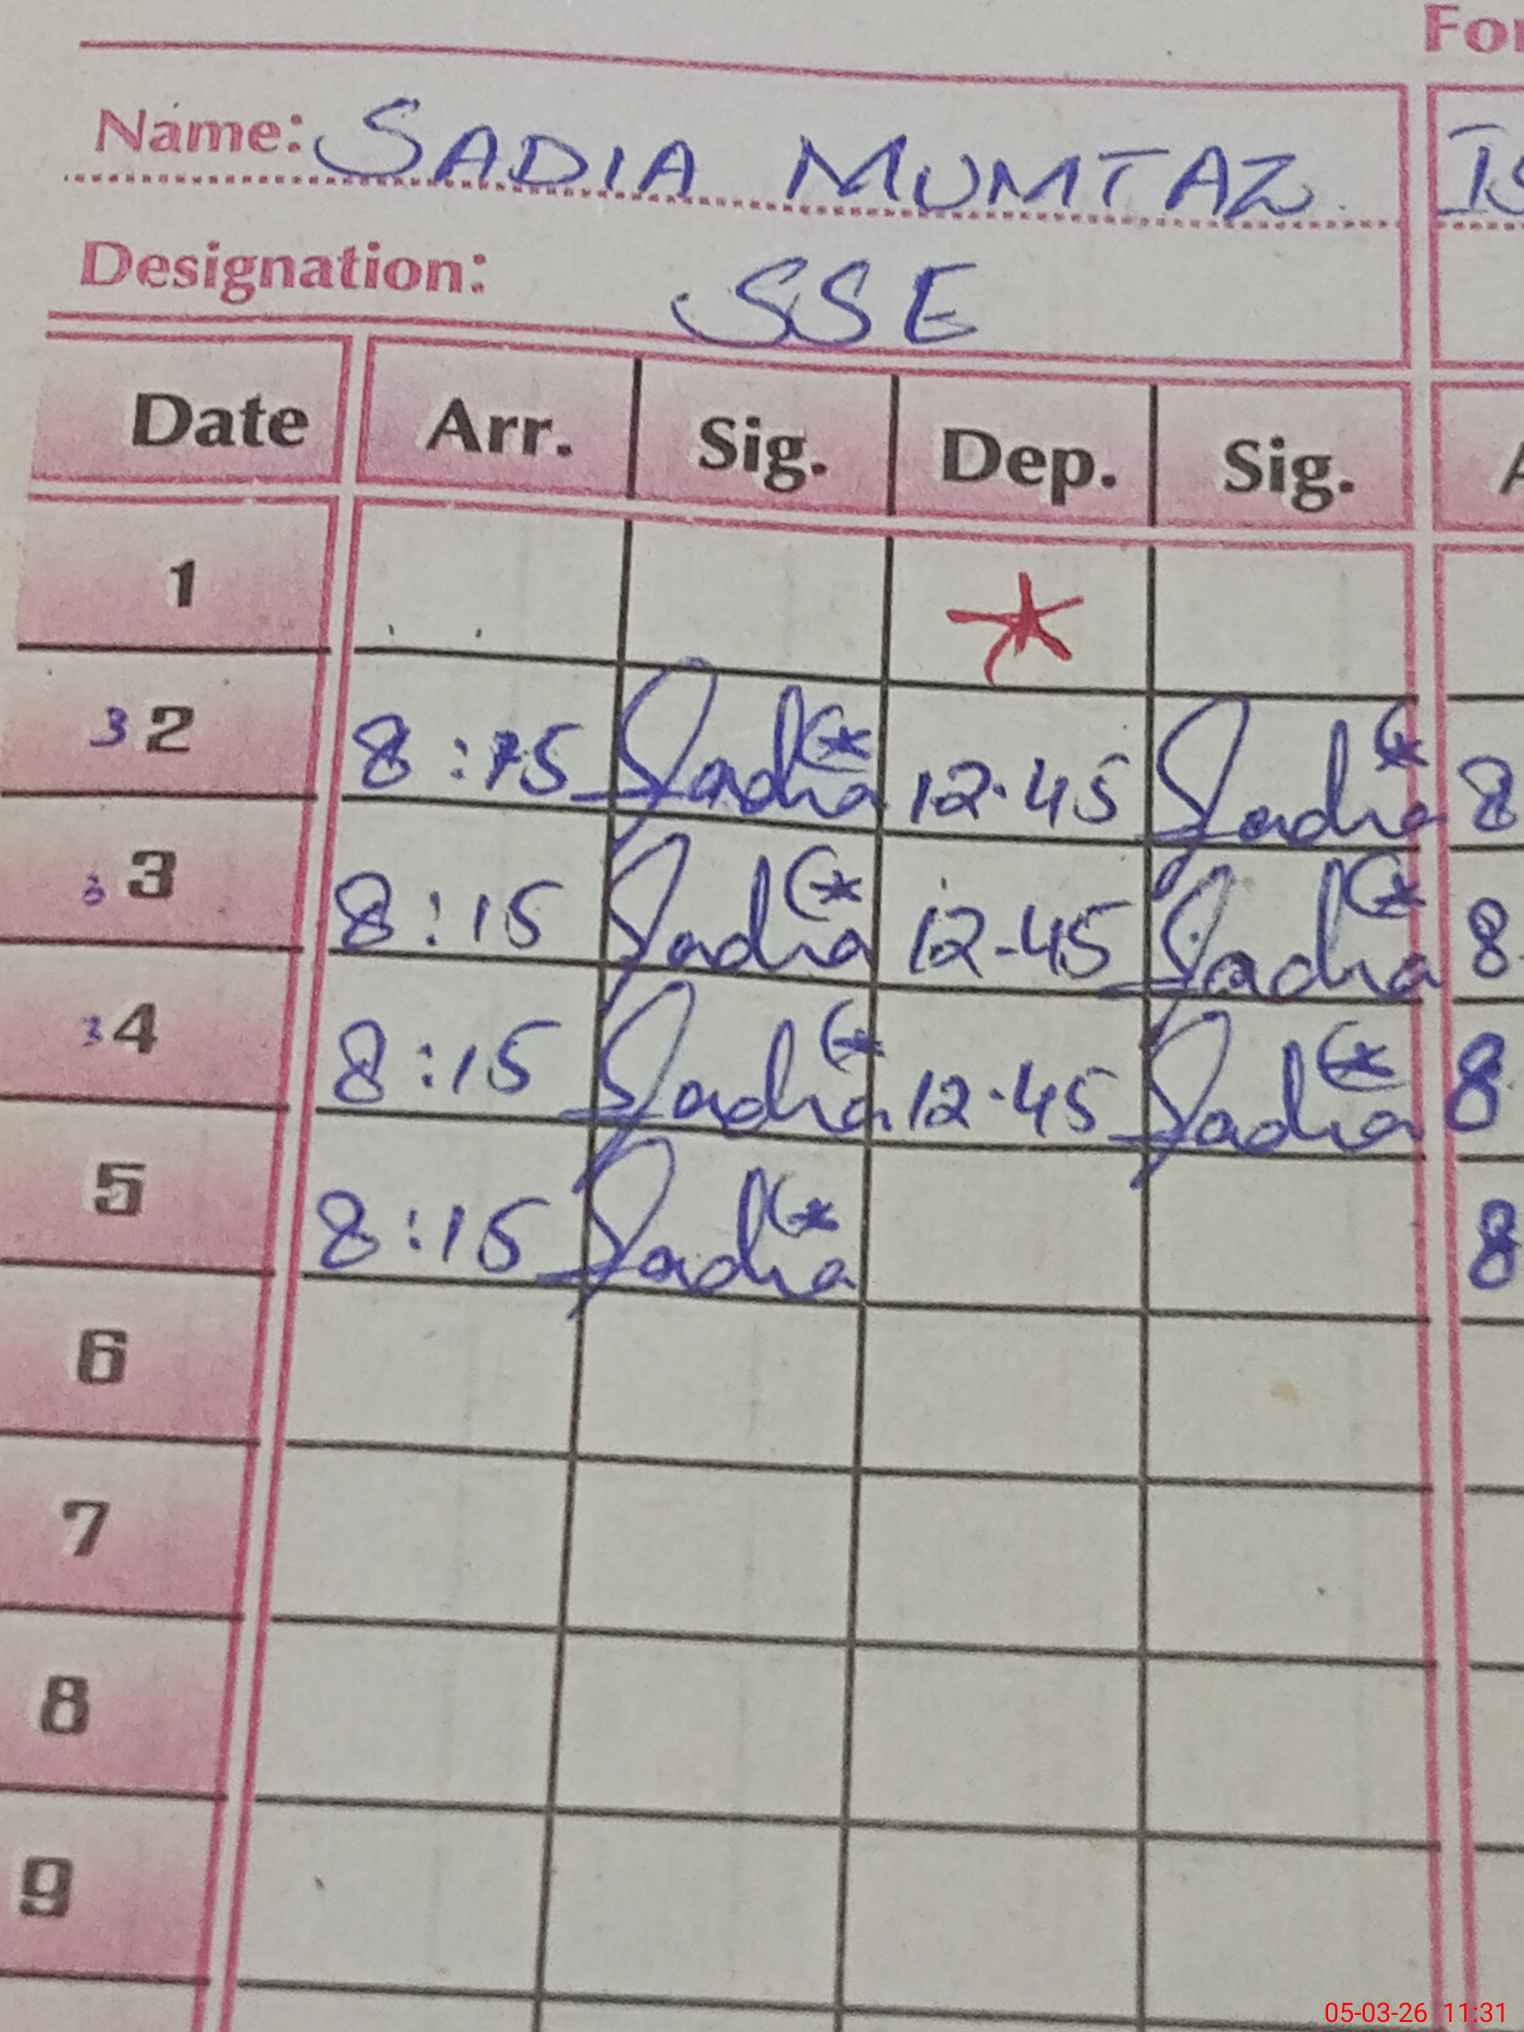 For
Name: SADIA MUMTAZ
Designation: SSE
Date Arr. Sig. Dep. Sig.
1
3 2 8:15 Sadia 12.45 Sadia 8
3 8:15 Sadia 12-45 Sadia 8
4 8:15 Sadia 12.45 Sadia 8
5 8:15 Sadia 8
6
7
8
9
05-03-26 11:31